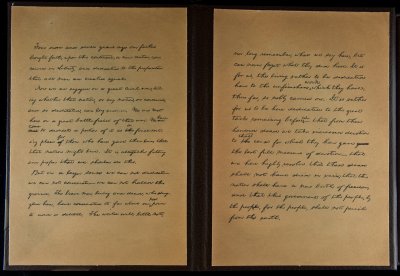 Four score and seven years ago our fathers
brought forth, upon this continent, a new nation, con-
ceived in Liberty, and dedicated to the proposition
that all men are created equal.
Now we are engaged in a great civil war, test-
ing whether that nation, or any nation, so conceived,
and so dedicated, can long endure. We are met
here on a great battle-field of that war. We have
come to dedicate a portion of it as the final rest-
ing place of those who here gave their lives that
that nation might live. It is altogether fitting
and proper that we should do this.
But in a larger sense we can not dedicate
we can not consecrate we can not hallow this
ground. The brave men, living and dead, who strug-
gled here, have consecrated it far above our poor
power to add or detract. The world will little note,
nor long remember, what we say here, but
can never forget what they did here. It is
for us, the living, rather to be dedicated
here to the unfinished work which they have,
thus far, so nobly carried on. It is rather
for us to be here dedicated to the great
task remaining before us that from these
honored dead we take increased devotion
to that cause for which they here gave
the last full measure of devotion that
we here highly resolve that these dead
shall not have died in vain; that this
nation shall have a new birth of freedom;
and that this government of the people, by
the people, for the people, shall not perish
from the earth.